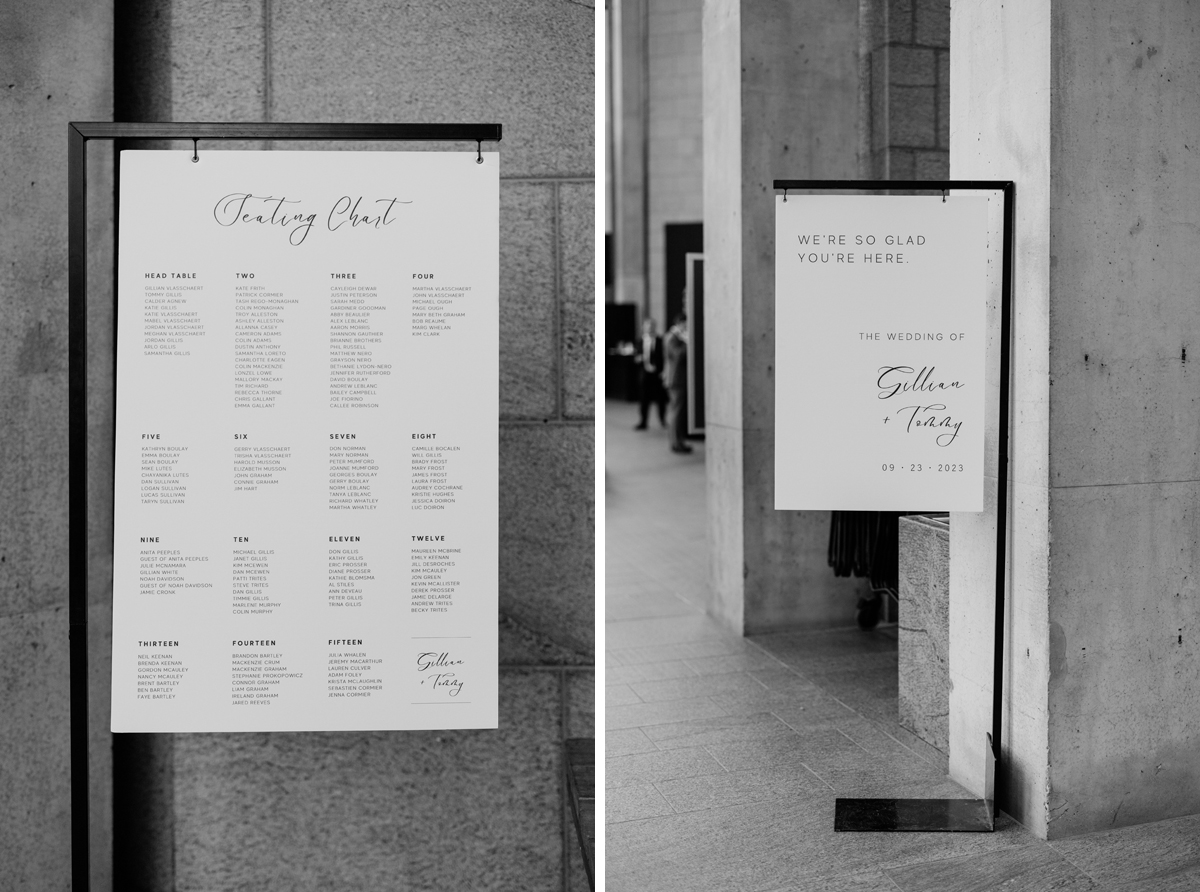 Seating Chart
HEAD TABLE
GILLIAN VLASSCHAERT
TOMMY GILLIS
CALDER AGNEW
KATIE GILLIS
KATIE VLASSCHAERT
MABEL VLASSCHAERT
JORDAN VLASSCHAERT
MEGHAN VLASSCHAERT
JORDAN GILLIS
ARLO GILLIS
SAMANTHA GILLIS
TWO
KATE FRITH
PATRICK CORMIER
TASH REGO-MONAGHAN
COLIN MONAGHAN
TROY ALLESTON
ASHLEY ALLESTON
ALLANNA CASEY
CAMERON ADAMS
COLIN ADAMS
DUSTIN ANTHONY
SAMANTHA LORETO
CHARLOTTE EAGEN
COLIN MACKENZIE
LONZEL LOWE
MALLORY MACKAY
TIM RICHARD
REBECCA THORNE
CHRIS GALLANT
EMMA GALLANT
THREE
CAYLEIGH DEWAR
JUSTIN PETERSON
SARAH MEDD
GARDNER GOODMAN
ABBY BEAULIER
ALEX LEBLANC
AARON MORRIS
SHANNON GAUTHIER
BRIANNE BROTHERS
PHIL RUSSELL
MATTHEW NERO
GRAYSON NERO
BETHANIE LYDON-NERO
JENNIFER RUTHERFORD
DAVID BOULAY
ANDREW LEBLANC
BAILEY CAMPBELL
JOE FIORINO
CALLEE ROBINSON
FOUR
MARTHA VLASSCHAERT
JOHN VLASSCHAERT
MICHAEL GUGH
PAUL GUGH
MARY BETH GRAHAM
ROB BEAUME
MARG WHELAN
KIM CLARK
FIVE
KATHRYN BOULAY
EMMA BOULAY
SEAN BOULAY
MIKE LUTES
CHAYANIKA LUTES
DAN SULLIVAN
LOGAN SULLIVAN
LUCAS SULLIVAN
TARYN SULLIVAN
SIX
GERRY VLASSCHAERT
TRISHA VLASSCHAERT
HAROLD MUSSON
ELIZABETH MUSSON
JOHN GRAHAM
CONNIE GRAHAM
JIM HART
SEVEN
DON NORMAN
MARY NORMAN
PETER MUMFORD
JOANNE MUMFORD
GEORGES BOULAY
GERRY BOULAY
NORM LEBLANC
TANYA LEBLANC
RICHARD WHATLEY
MARTHA WHATLEY
EIGHT
CAMILLE BOCALEN
WILL GILLIS
BRADY FROST
MARY FROST
JAMES FROST
LAURA FROST
AUDREY COCHRANE
KRISTIE HUGHES
JESSICA DOIRON
LUC DOIRON
NINE
ANITA PEEPLES
GUEST OF ANITA PEEPLES
JULIE MCNAMARA
GILLIAN WHITE
NOAH DAVIDSON
GUEST OF NOAH DAVIDSON
JAMIE CRONK
TEN
MICHAEL GILLIS
JANET GILLIS
KIM MCEWEN
DAN MCEWEN
PATTI TRITES
STEVE TRITES
DAN GILLIS
TIMMIE GILLIS
MARLENE MURPHY
COLIN MURPHY
ELEVEN
DON GILLIS
KATHY GILLIS
ERIC PROSSER
DIANE PROSSER
KATHIE BLOMSMA
AL STILES
ANN DEVEAU
PETER GILLIS
TRINA GILLIS
TWELVE
MAUREEN MCBRINE
EMILY KEENAN
JILL DESROCHES
KIM MCAULEY
JON GREEN
KEVIN MCALLISTER
DEREK PROSSER
JAMIE DELARGE
ANDREW TRITES
BECKY TRITES
THIRTEEN
NEIL KEENAN
BRENDA KEENAN
GORDON MCAULEY
NANCY MCAULEY
BRENT BARTLEY
BEN BARTLEY
FAYE BARTLEY
FOURTEEN
BRANDON BARTLEY
MACKENZIE CRUM
MACKENZIE GRAHAM
STEPHANIE PROKOPOWICZ
CONNOR GRAHAM
LIAM GRAHAM
IRELAND GRAHAM
JARED REEVES
FIFTEEN
JULIA WHALEN
JEREMY MACARTHUR
LAUREN CULVER
ADAM FOLEY
KRISTA MCLAUGHLIN
SEBASTIEN CORMIER
JENNA CORMIER
Gillian
+ Tommy
WE'RE SO GLAD
YOU'RE HERE.
THE WEDDING OF
Gillian
+ Tommy
09 · 23 · 2023